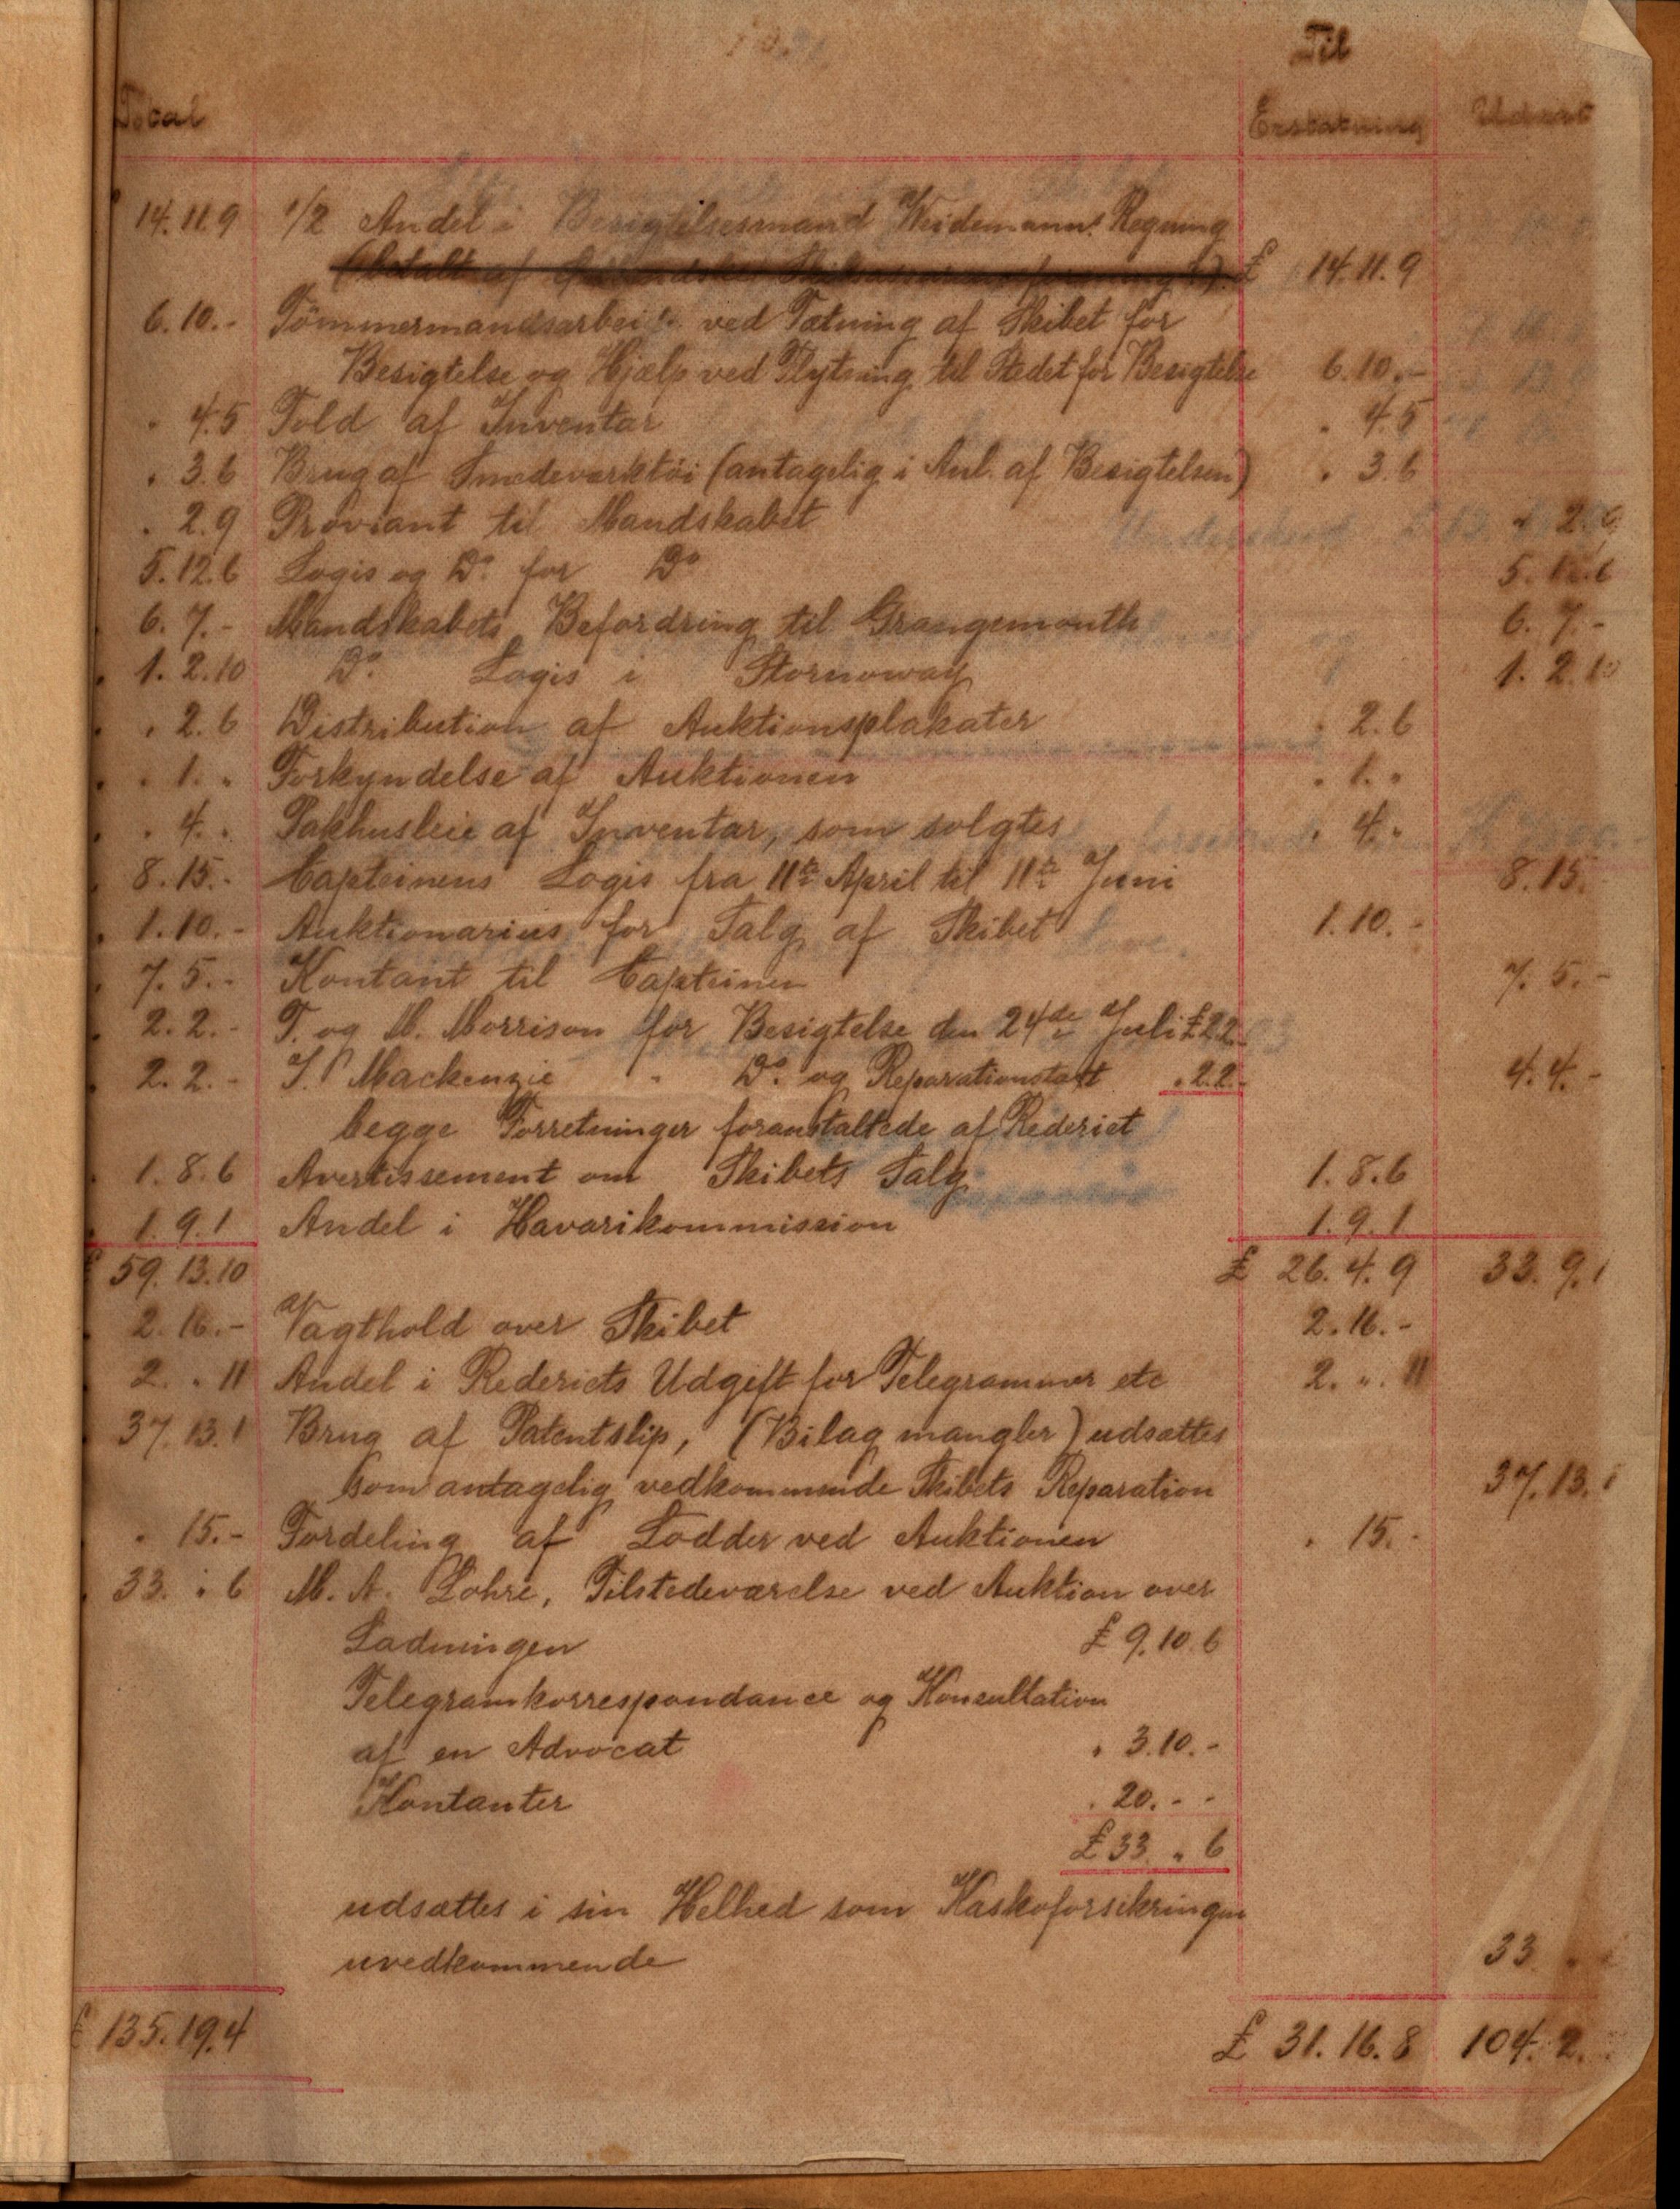 Til
Total Erstatning Udsat
14.11.9 1/2 Andel i Besigtelsesmand Weidemanns Regning
(betalt af £ 14.11.9
6.10.- Tömmermandsarbeide ved Tætning af Skibet for
Besigtelse og Hjælp ved Flytning til Stedet for Besigtelse 6.10.-
" 4.5 Told af Inventar " 4.5
" 3.6 Brug af Smedeværktöi (antagelig i Anl. af Besigtelsen) " 3.6
" 2.9 Proviant til Mandskabet " 2.
5.12.6 Logis og Do. for Do 5.12.6
6.7.- Mandskabets Befordring til Grangemouth 6.7.-
1.2.10 Do. Logis i Stornoway 1.2.10
" 2.6 Distribution af Auktionsplakater " 2.6
" 1. " Forkyndelse af Auktionen " 1. "
" 4. " Pakhusleie af Inventar, som solgtes " 4. "
8.15.- Capteinens Logis fra 11te April til 11te Juni 8.15.
1.10.- Auktionarius for Salg af Skibet 1.10.-
7.5.- Kontant til Capteinen 7.5.-
2.2.- T. og M. Morrison for Besigtelse den 24de Juli £2.2.-
2.2.- J. Mackenzie " Do. og Reparationstaxt " 2.2.- 4.4.-
begge Forretninger foranstaltede af Rederiet
1.8.6 Avertissement om Skibets Salg 1.8.6
1.9.1 Andel i Havarikommission 1.9.1
£ 59.13.10 £ 26.4.9 33.9.1
2.16.- Vagthold over Skibet 2.16.-
2. " 11 Andel i Rederiets Udgift for Telegrammer etc 2. " 11
37.13.1 Brug af Patentslip, (Bilag mangler) udsættes
som antagelig vedkommende Skibets Reparation 37.13.1
" 15.- Fordeling af Lodder ved Auktionen " 15.-
33. " 6 M. A. Lohre, Tilstedeværelse ved Auktion over
Ladningen £ 9.10.6
Telegramkorrespondance og Konsultation
af en Advocat " 3.10.-
Kontanter " 20.- -
£ 33 " 6
udsættes i sin Helhed som Kaskoforsikringen
uvedkommende 33
£ 135.19.4 £ 31.16.8 104.2.